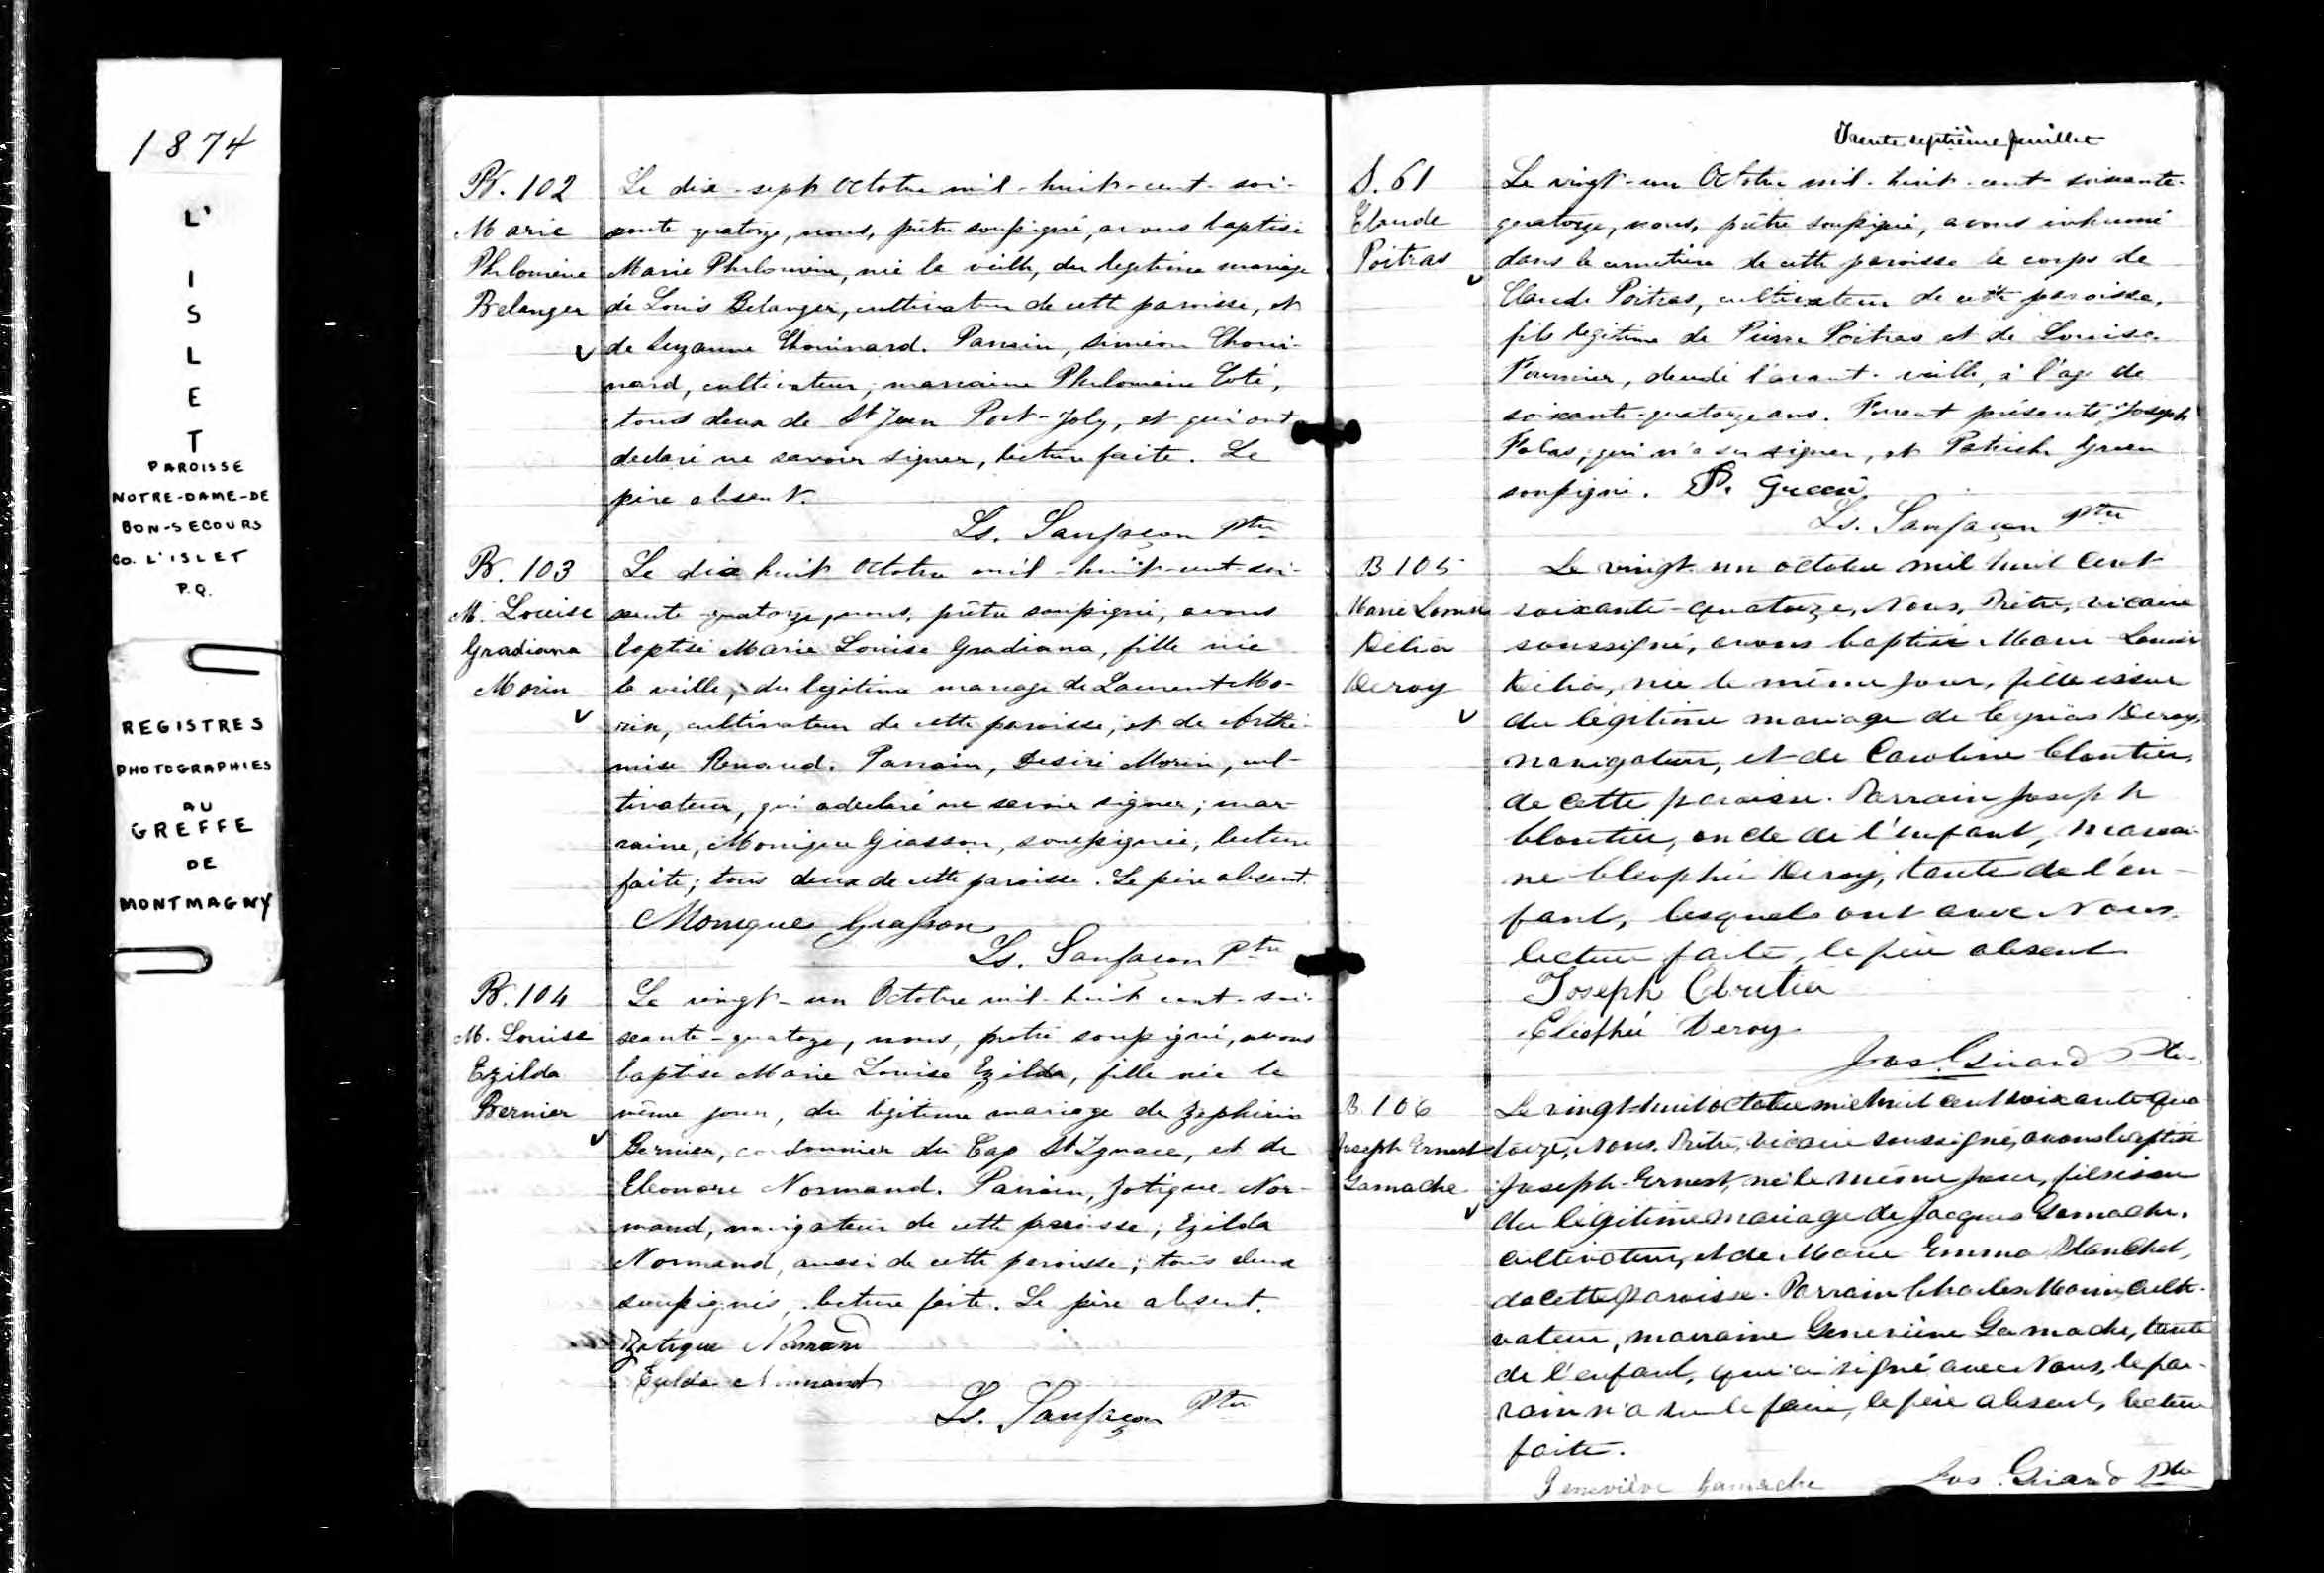 1874
L'
I
S
L
E
T
PAROISSE
NOTRE-DAME-DE
BON-SECOURS
CO. L'ISLET
P.Q.
REGISTRES
PHOTOGRAPHIES
AU
GREFFE
DE
MONTMAGNY
B. 102
Marie
Philomène
Belanger
Le dix-sept Octobre mil-huit-cent-soi-
xante quatorze, nous, prêtre soussigné, avons baptisé
Marie Philomène, née la veille, du legitime mariage
de Louis Belanger, cultivateur de cette paroisse, et
de Suzanne Chouinard. Parrain, Siméon Choui-
nard, cultivateur; marraine Philomène Coté,
tous deux de St Jean Port-Joly, et qui ont
declaré ne savoir signer, lecture faite. Le
père absent.
Ls. Sanfaçon Ptre
B. 103
M. Louise
Gradiana
Morin
Le dix huit Octobre mil-huit-cent-soi-
xante-quatorze, nous, prêtre soussigné, avons
baptisé Marie Louise Gradiana, fille née
la veille, du legitime mariage de Laurent Mo-
rin, cultivateur de cette paroisse, et de Arthé-
mise Renaud. Parrain, Desiré Morin, cul-
tivateur, qui a declaré ne savoir signer; mar-
raine, Monique Giasson, soussignée, lecture
faite; tous deux de cette paroisse. Le père absent.
Monique Giasson
Ls. Sanfaçon Ptre
B. 104
M. Louise
Ezilda
Bernier
Le vingt-un Octobre mil-huit cent-soi-
xante-quatorze, nous, prêtre soussigné, avons
baptisé Marie Louise Ezilda, fille née le
même jour, du légitime mariage de Zephirin
Bernier, cordonnier du Cap St Ignace, et de
Eleonore Normand. Parrain, Zotique Nor-
mand, navigateur de cette paroisse; Ezilda
Normand, aussi de cette paroisse; tous deux
soussignés, lecture faite. Le père absent.
Zotique Normand
Ezilda Normand
Ls. Sanfaçon Ptre
Trente septième feuillet
S. 61
Claude
Poitras
Le vingt-un Octobre mil-huit-cent-soixante-
quatorze, nous, prêtre soussigné, avons inhumé
dans le cimetière de cette paroisse le corps de
Claude Poitras, cultivateur de cette paroisse,
fils legitime de Pierre Poitras et de Louise
Fournier, décédé l'avant-veille, à l'age de
soixante-quatorze ans. Furent présents Joseph
qui n'a su signer, et Patrick Green
soussigné. P. Green
Ls. Sanfaçon Ptre
B 105
Marie Louise
Délia
Deroy
Le vingt-un octobre mil huit cent
soixante-quatorze, Nous, Prêtre, vicaire
soussigné, avons baptisé Marie Louise
Délia, née le même jour, fille issue
du légitime mariage de Cyprias Deroy,
navigateur, et de Caroline Cloutier,
de cette paroisse. Parrain Joseph
Cloutier, oncle de l'enfant, marrai-
ne Cléophée Deroy, tante de l'en-
fant, lesquels ont avec Nous,
lecture faite, le père absent
Joseph Cloutier
Cléophée Deroy
Jos. Girard Ptre
B. 106
Joseph Ernest
Gamache
Le vingt-huit octobre mil huit cent soixante qua
torze, Nous, Prêtre, Vicaire soussigné, avons baptisé
Joseph-Ernest, né le même jour, fils issu
du légitime mariage de Jacques Gamache,
cultivateur, et de Marie Emma Blanchet,
de cette paroisse. Parrain Charles Morin, culti-
vateur, marraine Geneviève Gamache, tante
de l'enfant, qui a signé avec Nous, le par-
rain n'a su le faire, le père absent, lecture
faite.
Geneviève Gamache Jos. Girard Ptre